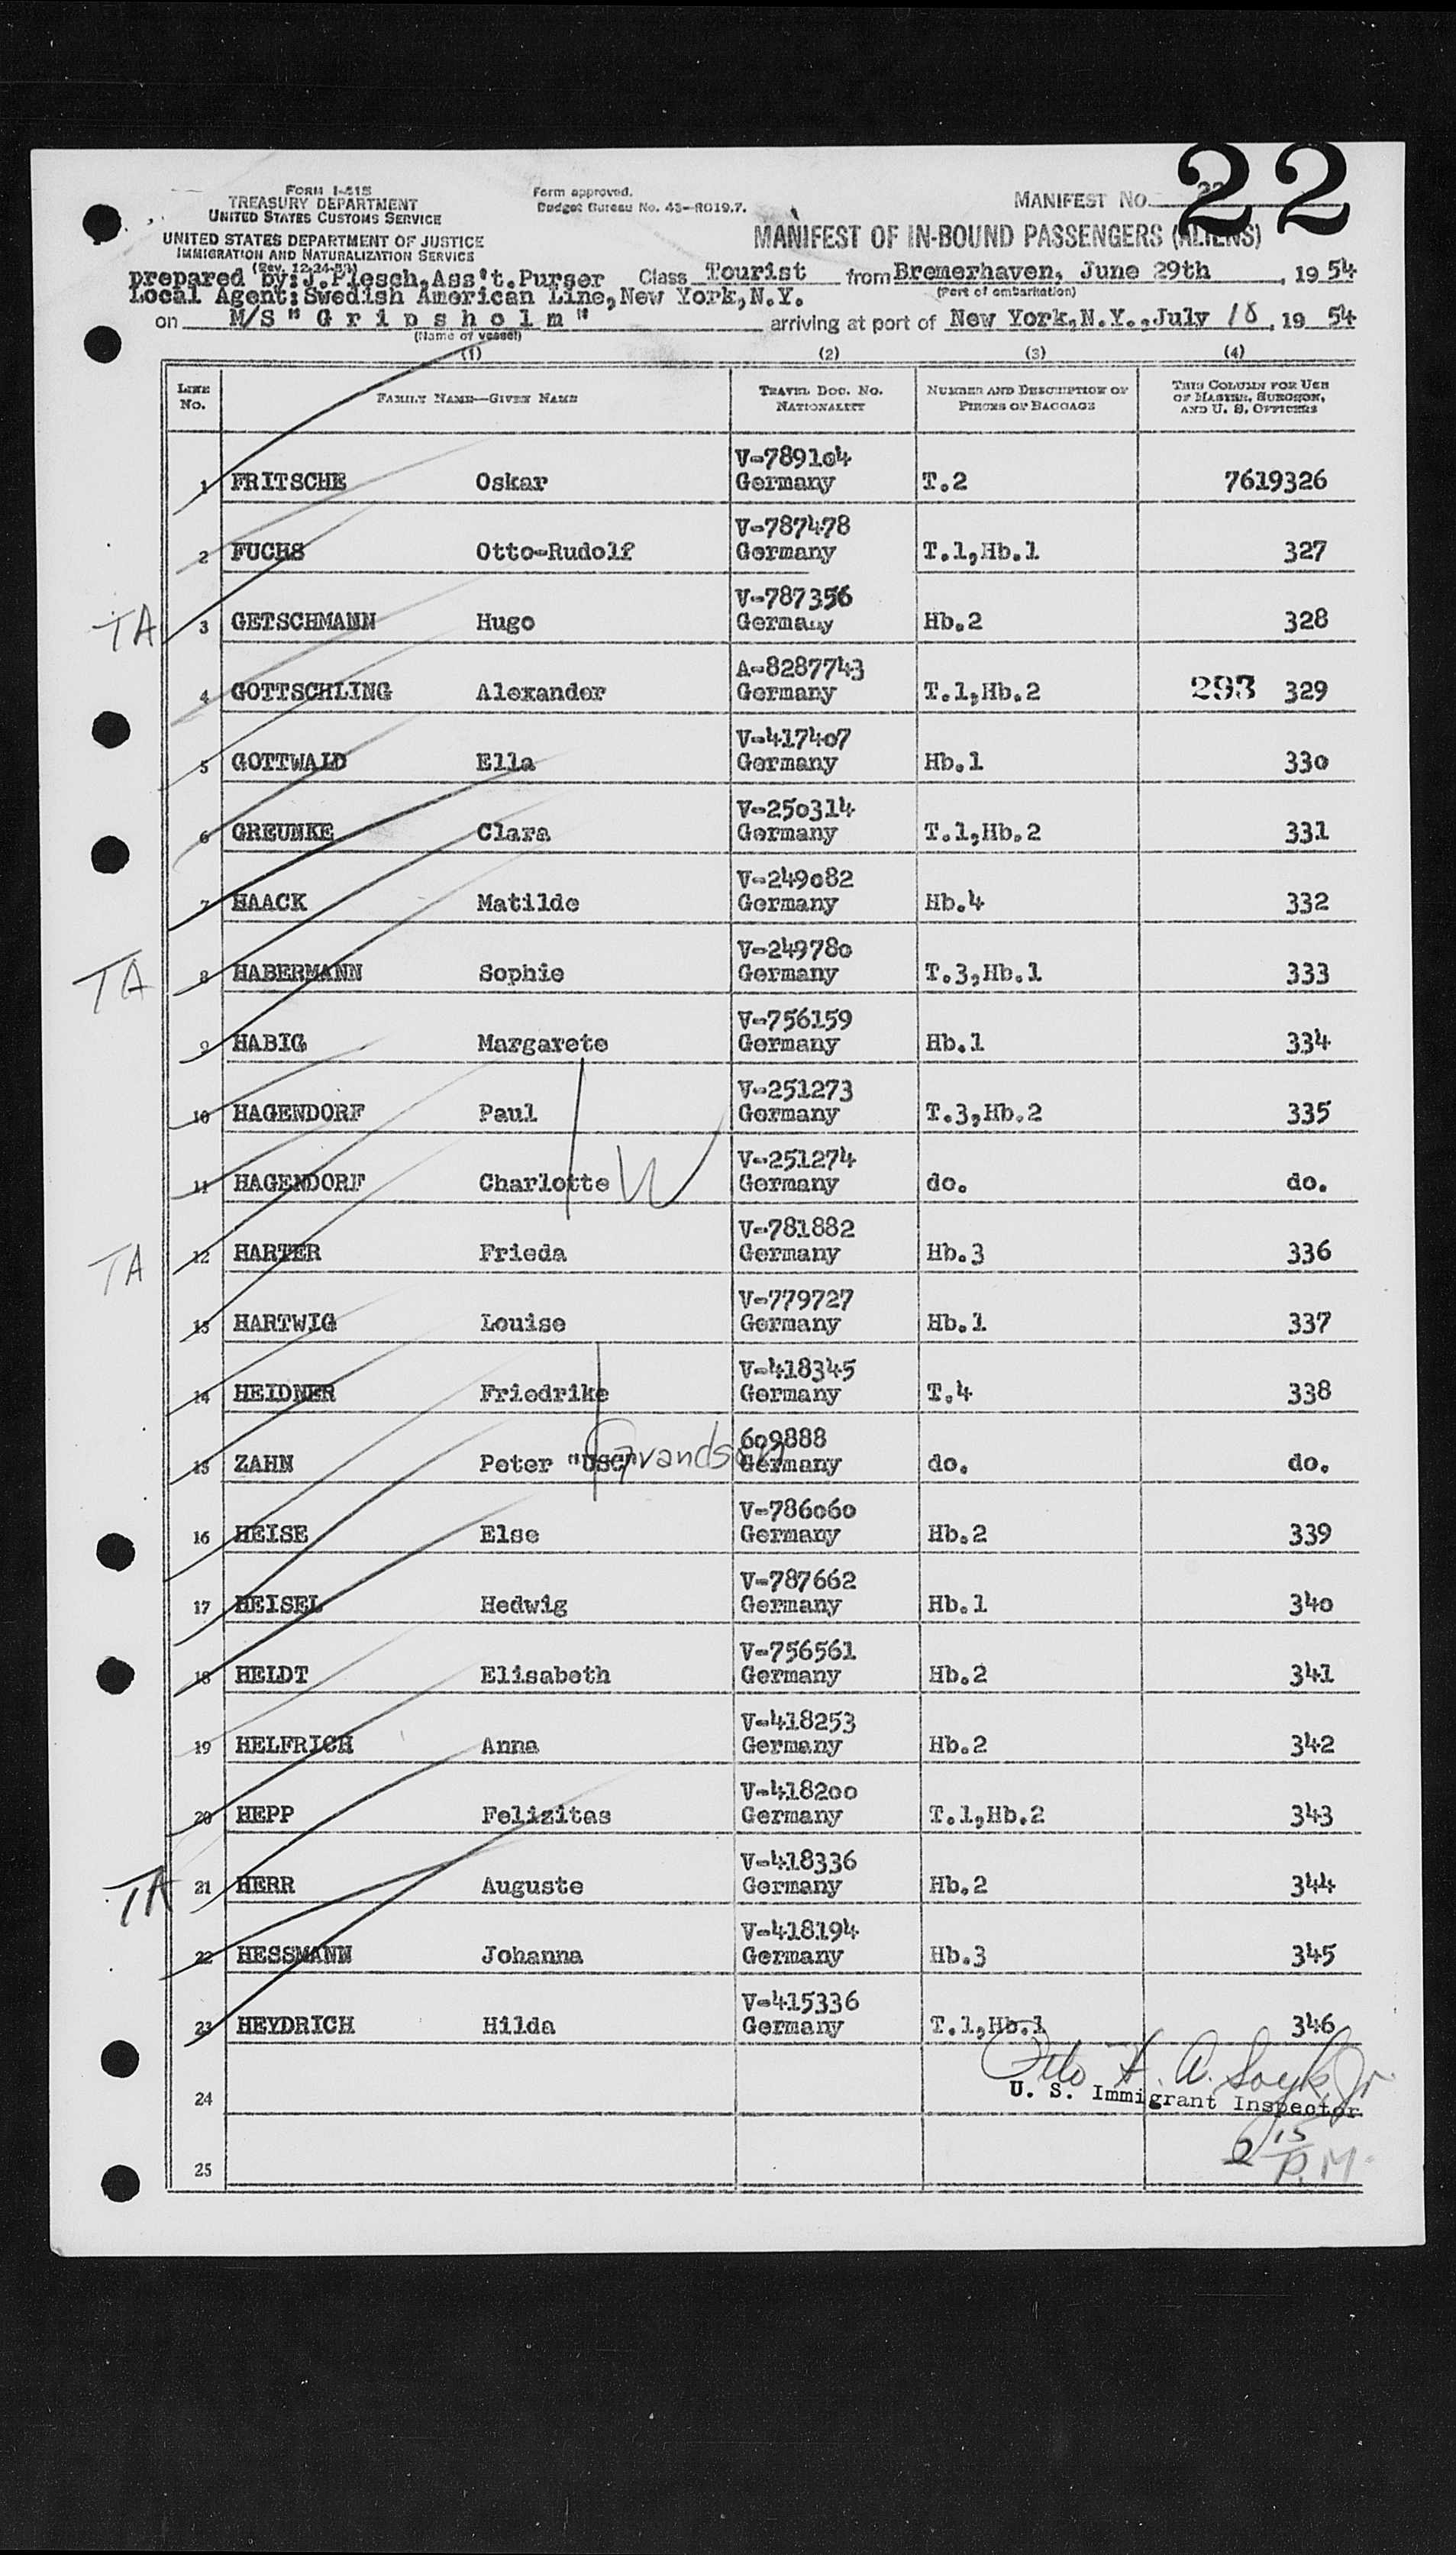 22
FORM I-418
TREASURY DEPARTMENT
UNITED STATES CUSTOMS SERVICE
UNITED STATES DEPARTMENT OF JUSTICE
IMMIGRATION AND NATURALIZATION SERVICE
(Rev. 12-24-53)
Form approved.
Budget Bureau No. 43-R019.7.
MANIFEST NO. 22
MANIFEST OF IN-BOUND PASSENGERS (ALIENS)
prepared by: J. Plesch, Ass't. Purser Class Tourist from Bremerhaven, June 29th, 1954
(Port of embarkation)
Local Agent: Swedish American Line, New York, N.Y.
on M/S " G r i p s h o l m " arriving at port of New York, N.Y., July 10, 1954
(Name of vessel)
(1) (2) (3) (4)
LINE NO. FAMILY NAME—GIVEN NAME TRAVEL DOC. NO. NATIONALITY NUMBER AND DESCRIPTION OF PIECES OF BAGGAGE THIS COLUMN FOR USE OF MASTER, SURGEON, AND U. S. OFFICERS
V-789104
1 FRITSCHE Oskar Germany T.2 7619326
V-787478
2 FUCHS Otto-Rudolf Germany T.1,Hb.1 327
V-787356
TA 3 GETSCHMANN Hugo Germany Hb.2 328
A-8287743
4 GOTTSCHLING Alexander Germany T.1,Hb.2 293 329
V-417407
5 GOTTWALD Ella Germany Hb.1 330
V-250314
6 GREUNKE Clara Germany T.1,Hb.2 331
V-249082
7 HAACK Matilde Germany Hb.4 332
V-249780
TA 8 HABERMANN Sophie Germany T.3,Hb.1 333
V-756159
9 HABIG Margarete Germany Hb.1 334
V-251273
10 HAGENDORF Paul Germany T.3,Hb.2 335
V-251274
11 HAGENDORF Charlotte W Germany do. do.
V-781882
TA 12 HARTER Frieda Germany Hb.3 336
V-779727
13 HARTWIG Louise Germany Hb.1 337
V-418345
14 HEIDNER Friedrike Germany T.4 338
609888
15 ZAHN Peter "USC" Grandson Germany do. do.
V-786060
16 HEISE Else Germany Hb.2 339
V-787662
17 HEISEL Hedwig Germany Hb.1 340
V-756561
18 HELDT Elisabeth Germany Hb.2 341
V-418253
19 HELFRICH Anna Germany Hb.2 342
V-418200
20 HEPP Felizitas Germany T.1,Hb.2 343
V-418336
TA 21 HERR Auguste Germany Hb.2 344
V-418194
22 HESSMANN Johanna Germany Hb.3 345
V-415336
23 HEYDRICH Hilda Germany T.1,Hb.1 346
24
U. S. Immigrant Inspector
25
2 15 P.M.